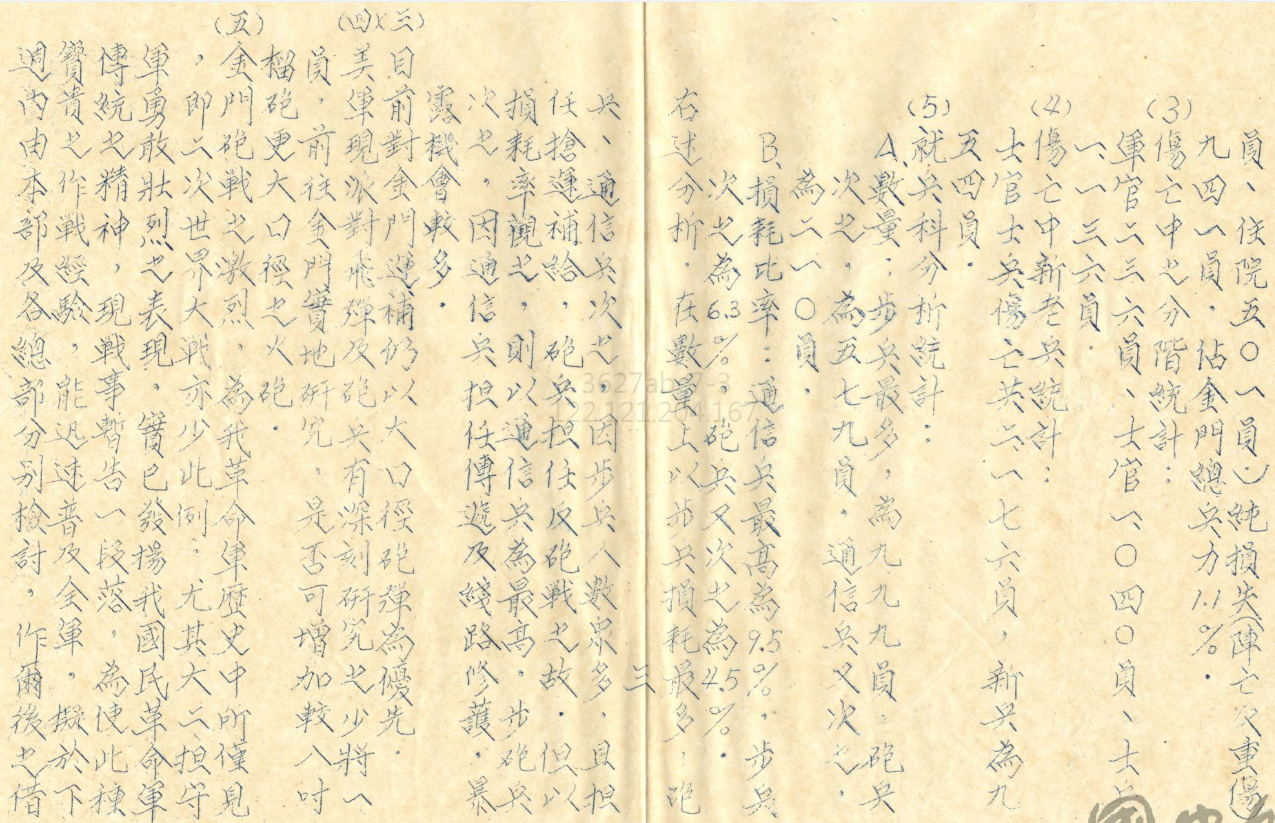 員、住院五〇一員)純損失(陣亡及重傷
九四一員，佔金門總兵力1.1%．
(3)傷亡中之分階統計：
軍官二三六員、士官一、〇四〇員、士兵
一、一三六員．
(4)傷亡中新老兵統計：
士官士兵傷亡共二、一七六員，新兵為九
五四員．
(5)就兵科分析統計：
A.數量：步兵最多，為九九九員．砲兵
次之，為五七九員．通信兵又次之，
為二一〇員．
B.損耗比率：通信兵最高為9.5%，步兵
次之為6.3%．砲兵又次之為4.5%．
右述分析．在數量上以步兵損耗最多，砲
三
兵、通信兵次之，因步兵人數眾多，且担
任搶運補給，砲兵担任反砲戰之故．但以
損耗率觀之，則以通信兵為最高，步砲兵
次之，因通信兵担任傳遞及綫路修護．暴
露機會較多．
(三)目前對金門運補仍以大口徑砲彈為優先．
(四)美軍現派對飛彈及砲兵有深刻研究之少將一
員，前往金門實地研究，是否可增加較八吋
榴砲更大口徑之火砲．
(五)金門砲戰之激烈，為我革命軍歷史中所僅見
，即二次世界大戰亦少此例．尤其大二担守
軍勇敢壯烈之表現，實已發揚我國民革命軍
傳統之精神，現戰事暫告一段落，為使此種
寶貴之作戰經驗，能迅速普及全軍，擬於下
週內由本部及各總部分別檢討，作爾後之借
3627ab
122.121.204.167